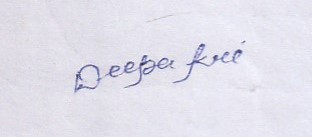 Deepa fri